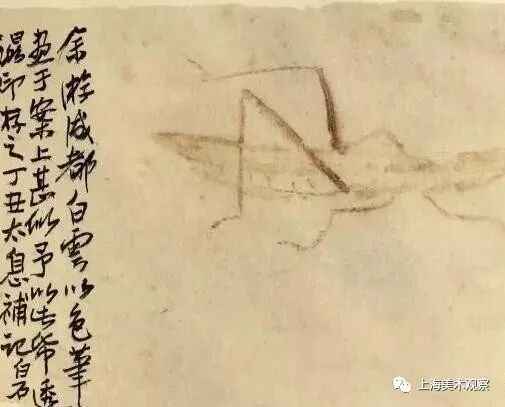 余游成都白雲以色筆
畫于案上甚似予以此帋透
濕印存之丁丑太息補記白石
上海美术观察